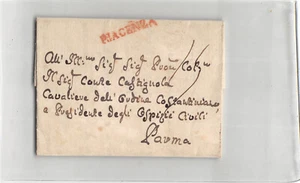 PIACENZA
All' Ill.mo Sig.r Sig.r Pron. Col.mo
Il Sig.r Conte Castignola
Cavaliere dell' Ordine Costantiniano
e Presidente degli Ospizi Civili
Parma